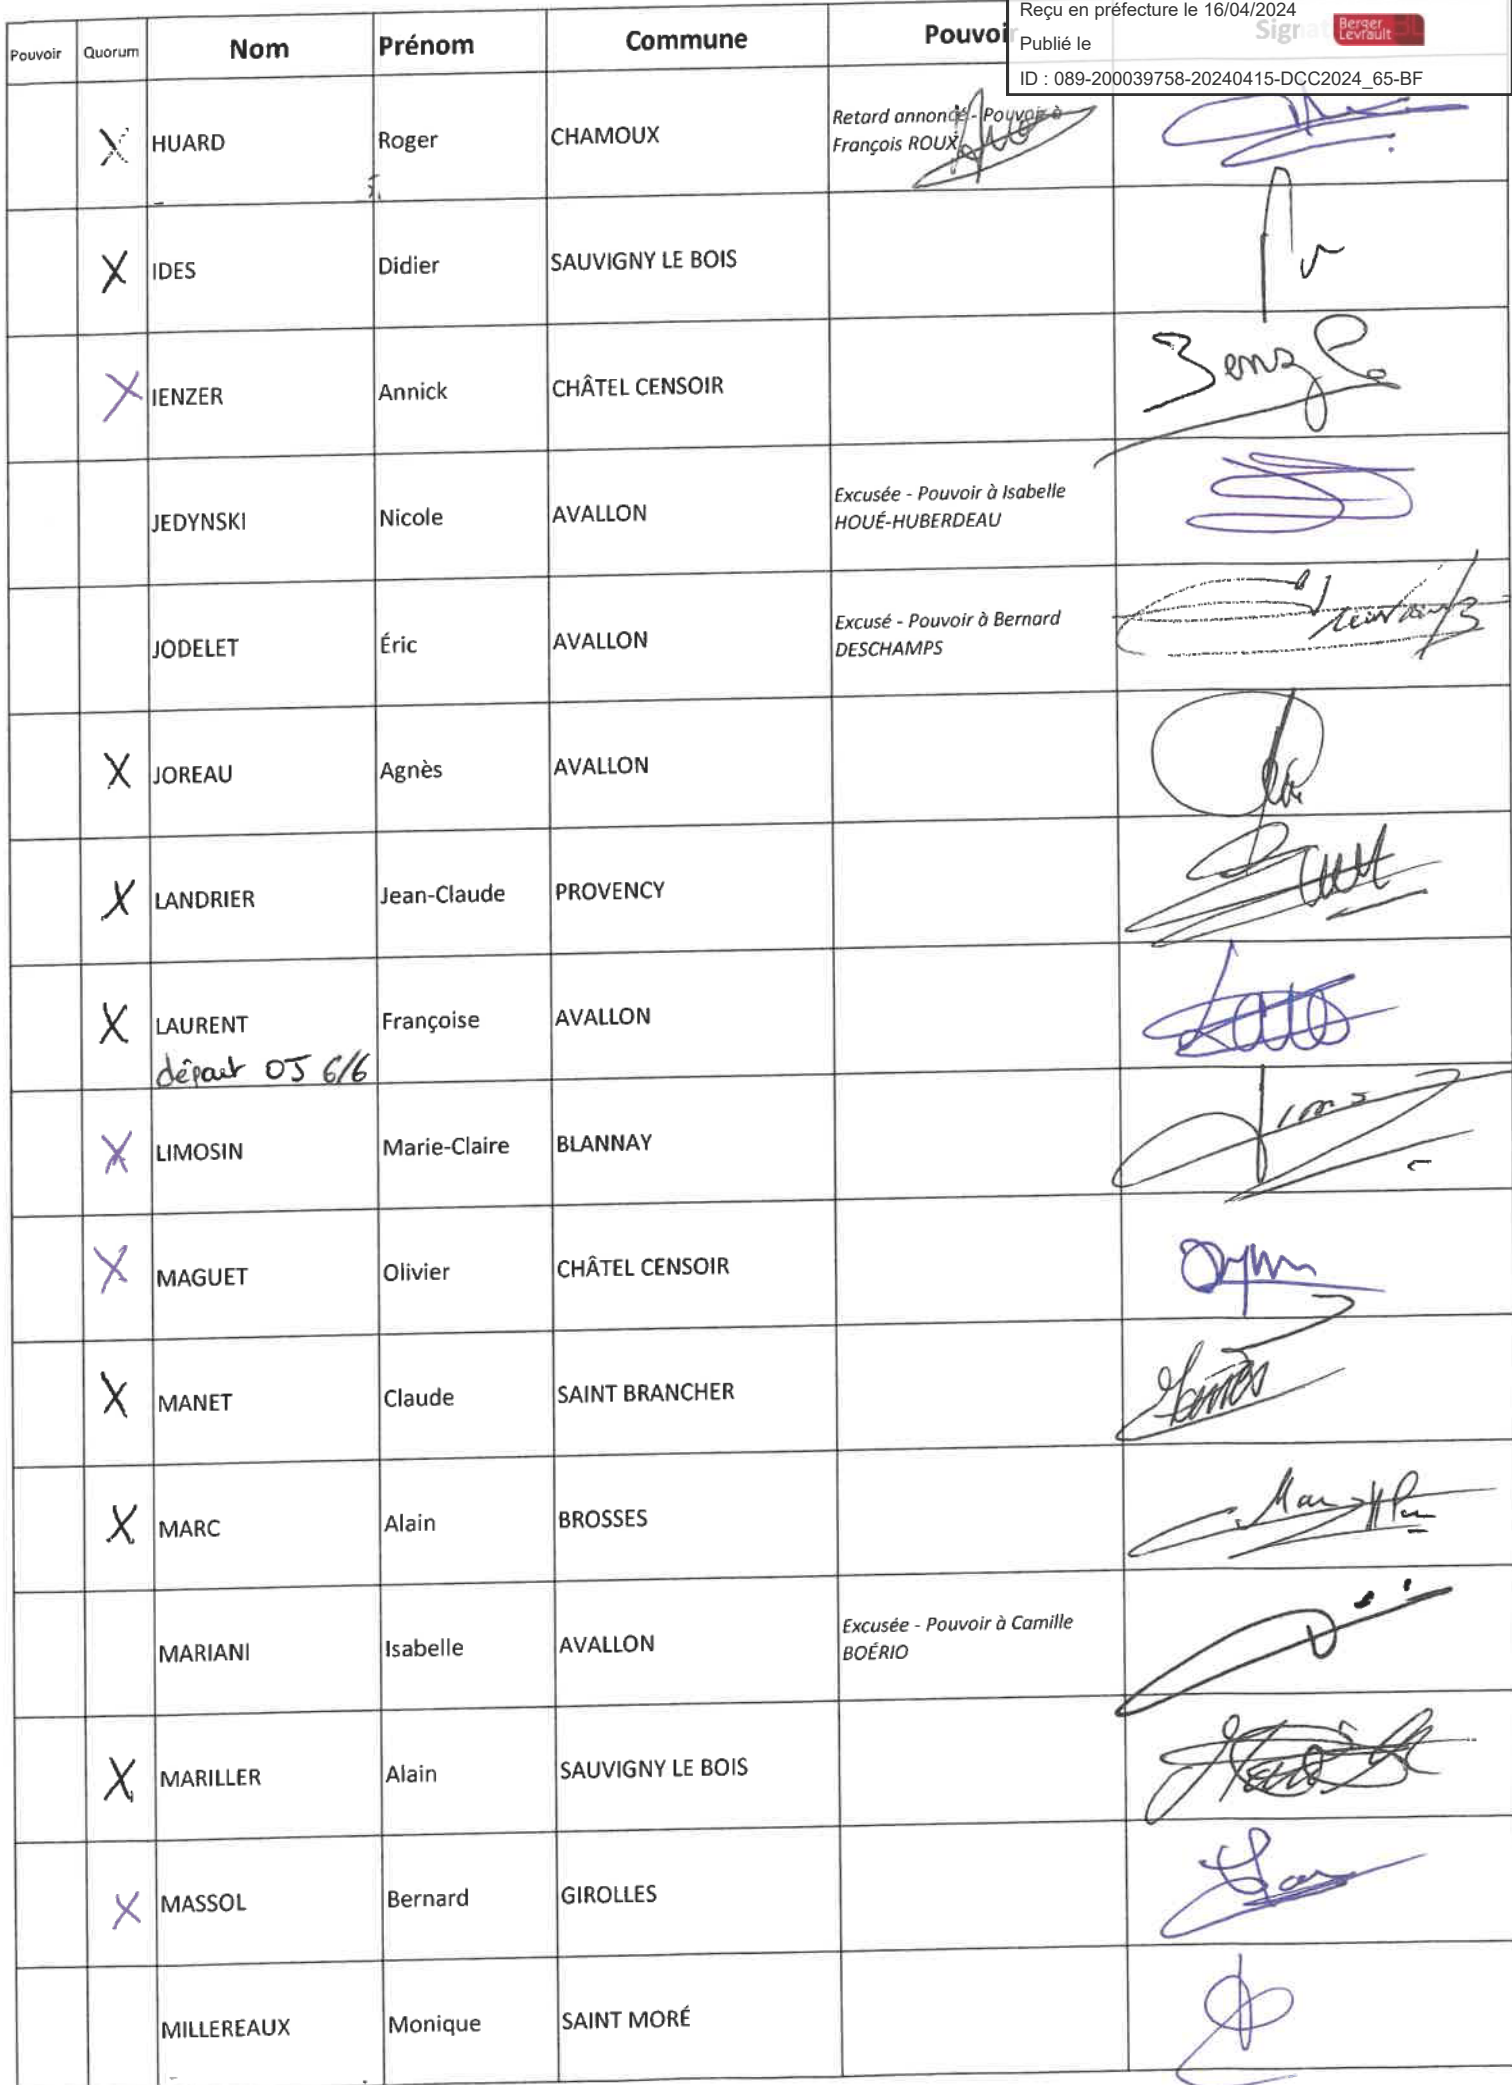 Reçu en préfecture le 16/04/2024
Publié le
ID : 089-200039758-20240415-DCC2024_65-BF
Berger Levrault
Pouvoir Quorum Nom Prénom Commune Pouvoir
X HUARD Roger CHAMOUX Retard annoncé - Pouvoir à
François ROUX
X IDES Didier SAUVIGNY LE BOIS
X IENZER Annick CHÂTEL CENSOIR
JEDYNSKI Nicole AVALLON Excusée - Pouvoir à Isabelle
HOUÉ-HUBERDEAU
JODELET Éric AVALLON Excusé - Pouvoir à Bernard
DESCHAMPS
X JOREAU Agnès AVALLON
X LANDRIER Jean-Claude PROVENCY
X LAURENT Françoise AVALLON
départ OJ 6/6
X LIMOSIN Marie-Claire BLANNAY
X MAGUET Olivier CHÂTEL CENSOIR
X MANET Claude SAINT BRANCHER
X MARC Alain BROSSES
MARIANI Isabelle AVALLON Excusée - Pouvoir à Camille
BOÉRIO
X MARILLER Alain SAUVIGNY LE BOIS
X MASSOL Bernard GIROLLES
MILLEREAUX Monique SAINT MORÉ